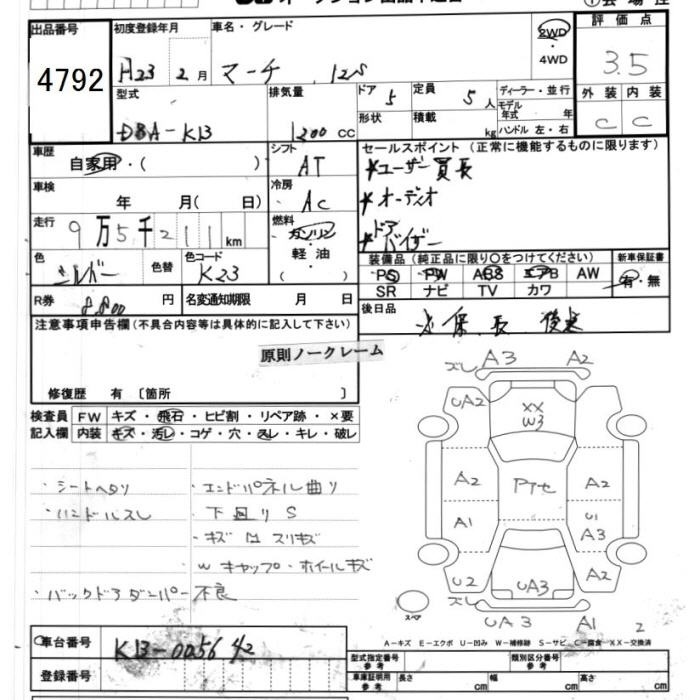 出品番号 初度登録年月 車名・グレード 2WD 評価点
4792 H23 2月 マーチ 12S ・4WD 3.5
型式 排気量 ドア 5 定員 5人 ディーラー・並行 外装 内装
DBA-K13 1200cc 形状 積載 kg モデル年式 年 C C
ハンドル 左・右
車歴 シフト セールスポイント (正常に機能するものに限ります)
自家用・( ) AT *ユーザー買長
車検 年 月( 日) 冷房 AC *オーディオ
走行 9万5千211km 燃料 ガソリン・軽油・( ) *ドアバイザー
色 シルバー 色替 色コード K23 装備品 (純正品に限り○をつけてください) 新車保証書
PS PW ABS エアB AW 有・無
SR ナビ TV カワ
R券 8,800円 名変通知期限 月 日 後日品
注意事項申告欄(不具合内容等は具体的に記入して下さい) 保、長
原則ノークレーム
修復歴 有 〔箇所 〕
検査員 FW キズ・飛石・ヒビ割・リペア跡・×要
記入欄 内装 キズ・汚レ・コゲ・穴・スレ・キレ・破レ
・シートヘタリ ・エンドパネル曲り
・ハンドルスレ ・下回りS
・キズ凹スリキズ
W キャップ・ホイールキズ
・バックドアダンパー不良
ズレ A3 A2
UA2 XX W3
A2 PTセ A2
A1 U1 A3
U2 UA3 A2
スペア ズレ UA3 A1 2
A-キズ E-エクボ U-凹み W-補修跡 S-サビ C-腐食 XX-交換済
車台番号 K13-005642 型式指定番号 参考 類別区分番号 参考
登録番号 車庫証明用 参考 長さ cm 幅 cm 高さ cm